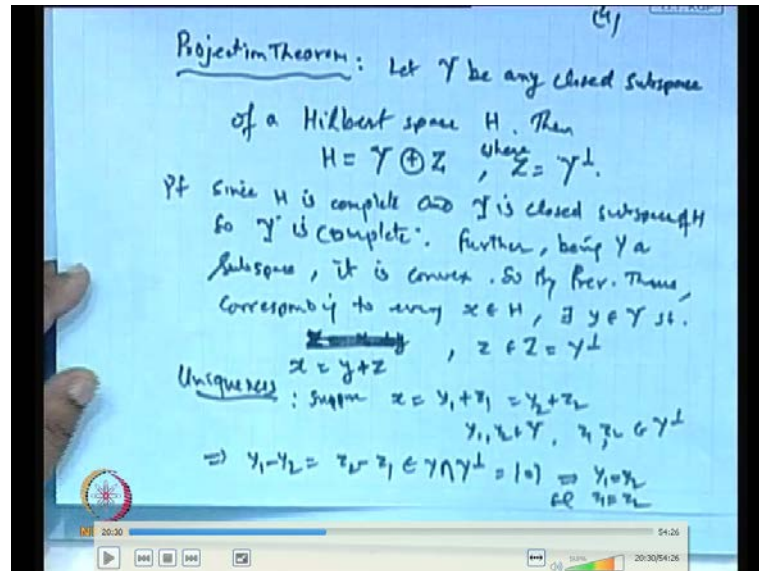 (4)
Projection Theorem: Let Y be any closed subspace
of a Hilbert space H. Then
H = Y ⊕ Z, where Z = Y⊥.
Pf Since H is complete and Y is closed subspace of H
So Y is complete. Further, being Y a
Subspace, it is convex. So By Prev. Thm,
Corresponding to every x ∈ H, ∃ y ∈ Y st.
x = y + z, z ∈ Z = Y⊥
Uniqueness: Suppose x = y₁ + z₁ = y₂ + z₂
y₁, y₂ ∈ Y, z₁, z₂ ∈ Y⊥
⇒ y₁ - y₂ = z₂ - z₁ ∈ Y ∩ Y⊥ = {0} ⇒ y₁ = y₂
z₁ = z₂
20:30 54:26
50% 20:30/54:26